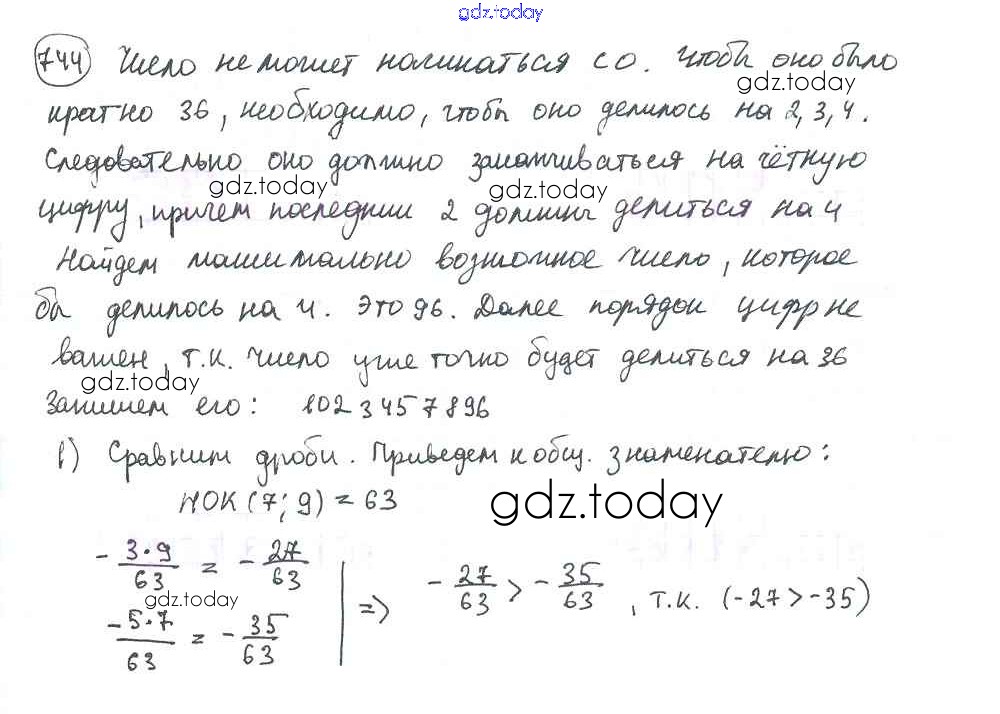 gdz.today
744 Число не может начинаться с 0. Чтобы оно было
gdz.today
кратно 36, необходимо, чтобы оно делилось на 2, 3, 4.
Следовательно оно должно заканчиваться на чётную
gdz.today gdz.today
цифру, причем последнии 2 должны делиться на 4
Найдем максимально возможное число, которое
бы делилось на 4. Это 96. Далее порядок цифр не
важен, т.к. число уже точно будет делиться на 36
gdz.today
Запишем его: 1023457896
в) Сравним дроби. Приведем к общ. знаменателю:
НОК (7; 9) = 63
gdz.today
- 3·9/63 = - 27/63
gdz.today
-5·7/63 = - 35/63
=> - 27/63 > - 35/63, т.к. (-27 > -35)